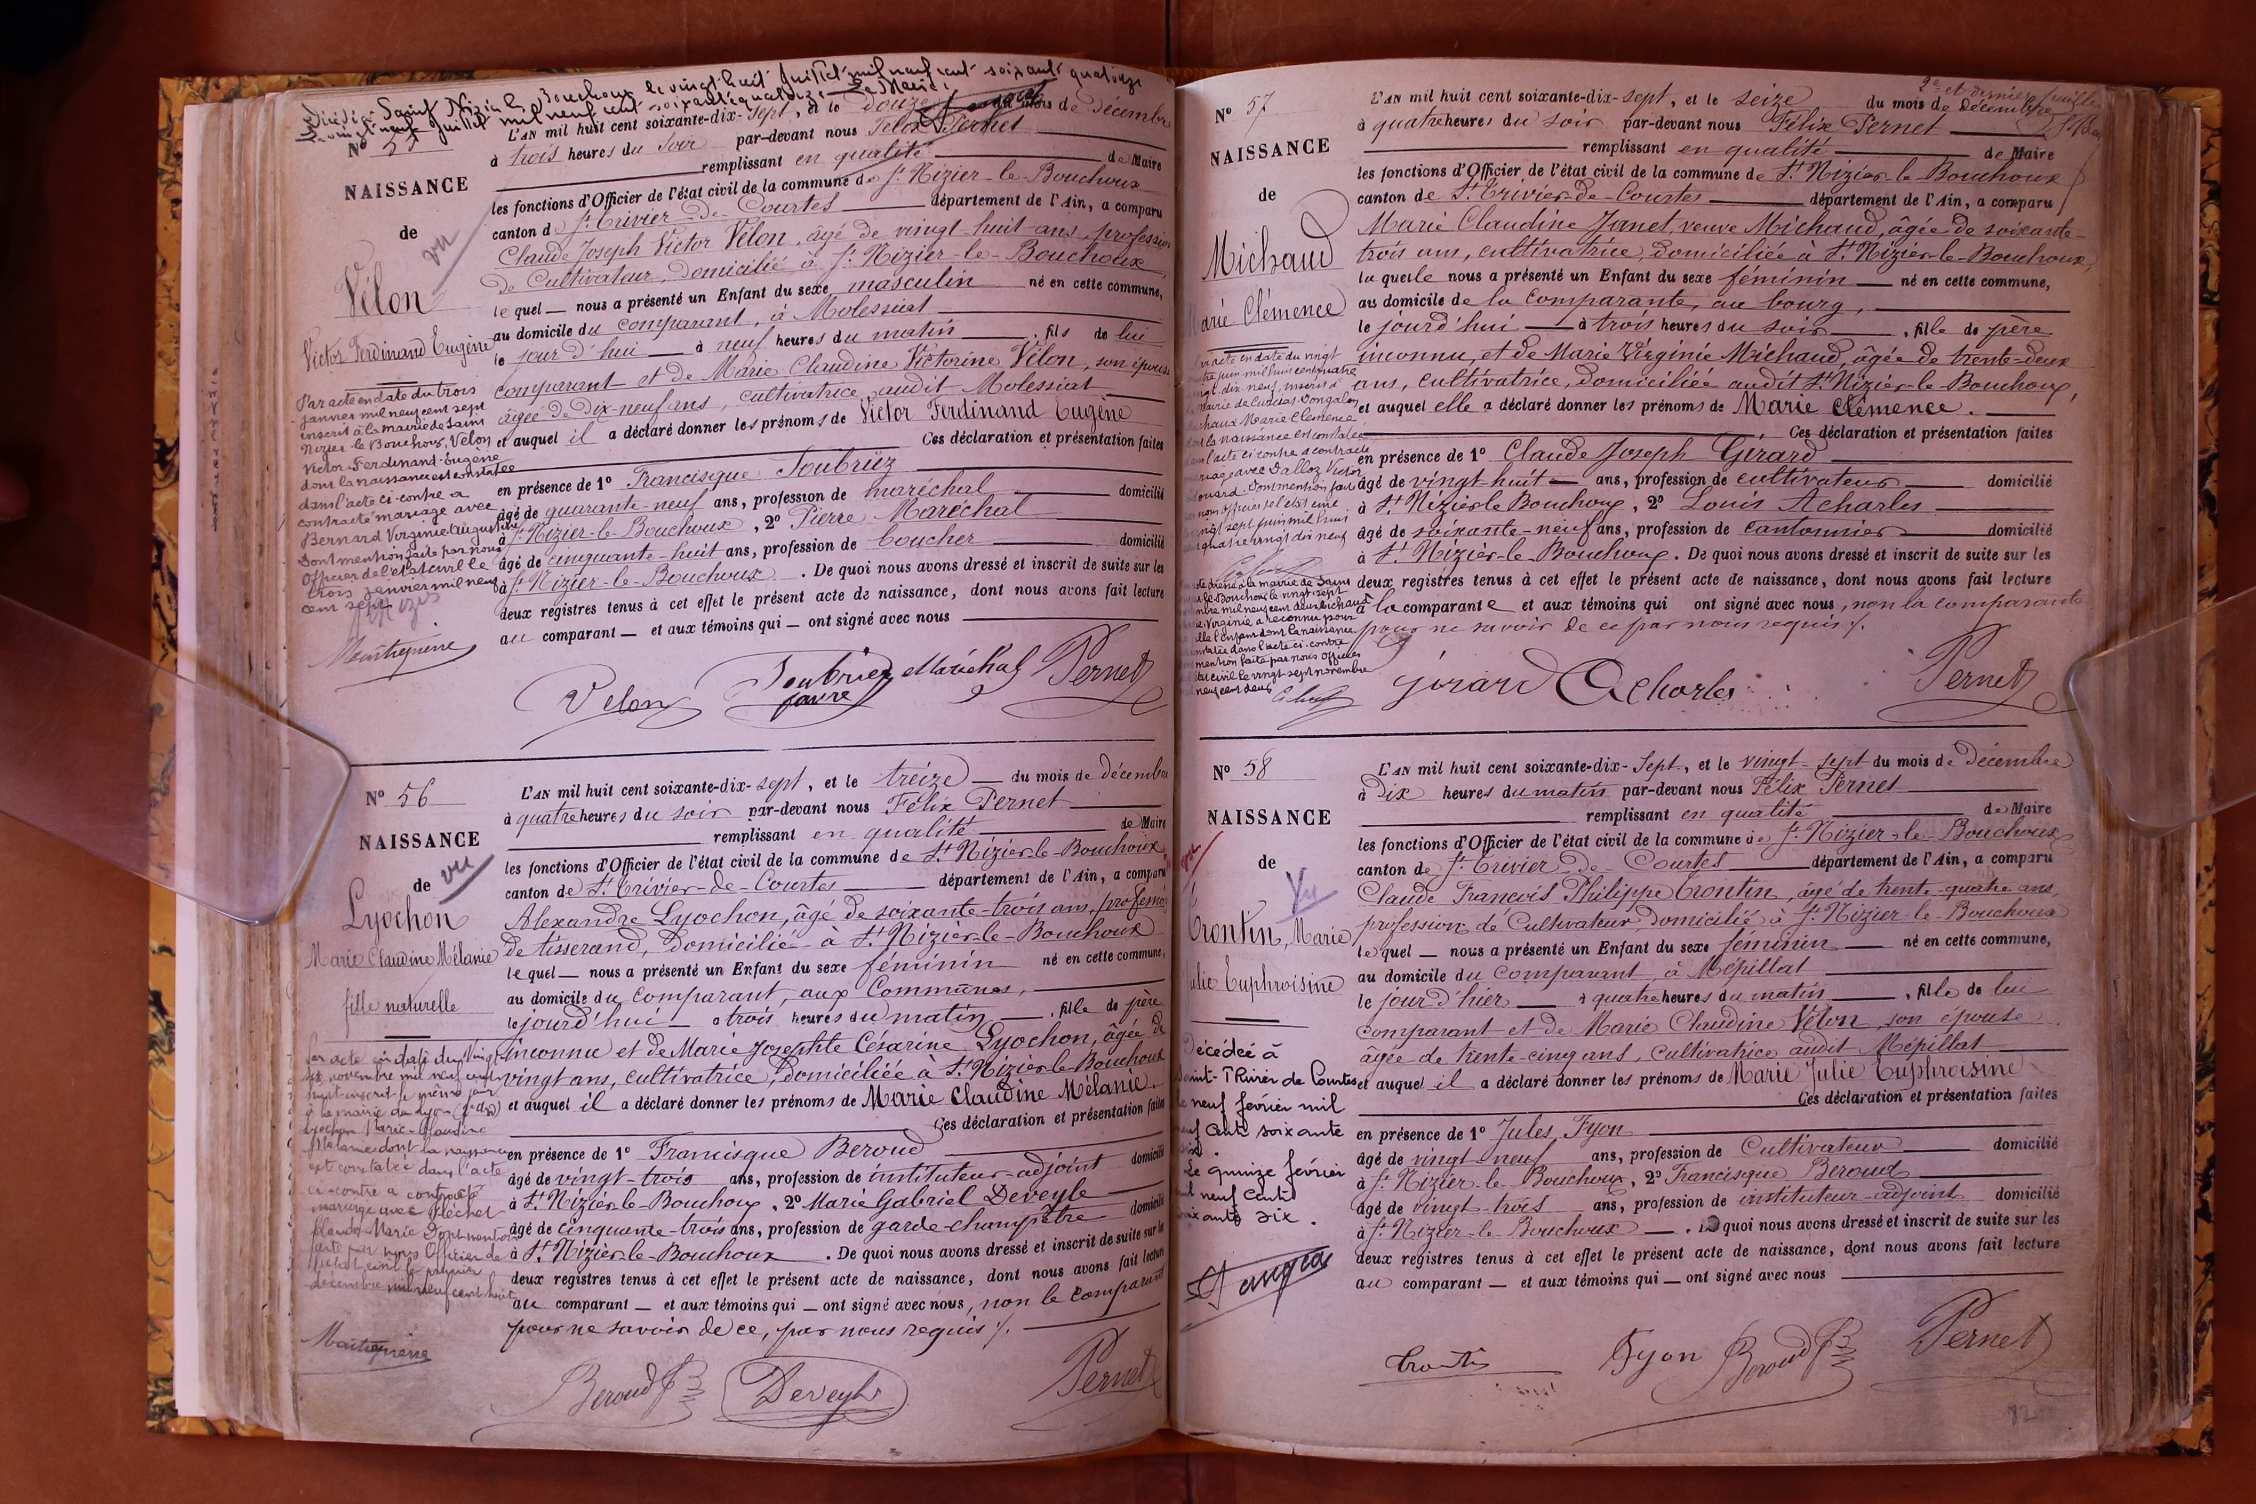 Saint Nizier le Bouchoux le vingt huit juillet mil neuf cent soixante quatorze
vingt neuf juillet mil neuf cent soixante quatorze. Le Maire,
Nº 55
NAISSANCE
de
vu
Vélon
Victor Ferdinand Eugène
Par acte en date du trois
janvier mil neuf cent sept
inscrit à la mairie de Saint
Nizier-le-Bouchoux, Vélon
Victor-Ferdinand-Eugène
dont la naissance est constatée
dans l'acte ci-contre a
contracté mariage avec
Bernard Virginie Augustine
Dont mention faite par nous
Officier de l'état civil le
trois janvier mil neuf
cent sept
L'AN mil huit cent soixante-dix-sept, et le douze du mois de Décembre
à trois heures du soir par-devant nous Félix Pernet
remplissant en qualité de Maire
les fonctions d'Officier de l'état civil de la commune de St Nizier-le-Bouchoux
canton de St Trivier-de-Courtes département de l'Ain, a comparu
Claude Joseph Victor Vélon, âgé de vingt-huit ans, profession
de Cultivateur, domicilié à St Nizier-le-Bouchoux,
lequel — nous a présenté un Enfant du sexe masculin né en cette commune,
au domicile du comparant, à Molessiat
le jour d'hui à neuf heures du matin, fils de lui
comparant et de Marie Claudine Victorine Vélon, son épouse
âgée de dix-neuf ans, cultivatrice audit Molessiat
et auquel il a déclaré donner les prénoms de Victor Ferdinand Eugène
Ces déclaration et présentation faites
en présence de 1º Francisque Joubrüz
âgé de quarante-neuf ans, profession de maréchal domicilié
à St Nizier-le-Bouchoux, 2º Pierre Maréchal
âgé de cinquante-huit ans, profession de boucher domicilié
à St Nizier-le-Bouchoux. De quoi nous avons dressé et inscrit de suite sur les
deux registres tenus à cet effet le présent acte de naissance, dont nous avons fait lecture
au comparant — et aux témoins qui — ont signé avec nous
Velon Maréchal Pernet
Nº 56
NAISSANCE
de
vu
Lyochon
Marie Claudine Mélanie
fille naturelle
Par acte en date du vingt
six novembre mil neuf cent
huit inscrit le même jour
à la mairie de Lyon
Lyochon Marie-Claudine
Mélanie dont la naissance
est constatée dans l'acte
ci-contre a contracté
mariage avec
Claude-Marie Dont mention
faite par nous Officier de
l'état civil le premier
décembre mil neuf cent huit
L'AN mil huit cent soixante-dix-sept, et le treize du mois de décembre
à quatre heures du soir par-devant nous Félix Pernet
remplissant en qualité de Maire
les fonctions d'Officier de l'état civil de la commune de St Nizier-le-Bouchoux
canton de St Trivier-de-Courtes département de l'Ain, a comparu
Alexandre Lyochon, âgé de soixante-trois ans, profession
de tisserand, domicilié à St Nizier-le-Bouchoux
lequel — nous a présenté un Enfant du sexe féminin né en cette commune,
au domicile du comparant, aux Communes,
le jourd'hui à trois heures du matin, fille de père
inconnu et de Marie Josephte Césarine Lyochon, âgée de
vingt ans, cultivatrice, domiciliée à St Nizier-le-Bouchoux
et auquel il a déclaré donner les prénoms de Marie Claudine Mélanie.
Ces déclaration et présentation faites
en présence de 1º Francisque Beroud
âgé de vingt-trois ans, profession de instituteur-adjoint domicilié
à St Nizier-le-Bouchoux, 2º Marie Gabriel Deveyle
âgé de cinquante-trois ans, profession de garde-champêtre domicilié
à St Nizier-le-Bouchoux. De quoi nous avons dressé et inscrit de suite sur les
deux registres tenus à cet effet le présent acte de naissance, dont nous avons fait lecture
au comparant — et aux témoins qui — ont signé avec nous, non le comparant
pour ne savoir de ce, par nous requis /.
Beroud Deveyle Pernet
2e et dernier feuillet
Nº 57
NAISSANCE
de
Michaud
Marie Clémence
L'AN mil huit cent soixante-dix-sept, et le seize du mois de Décembre
à quatre heures du soir par-devant nous Félix Pernet
remplissant en qualité de Maire
les fonctions d'Officier de l'état civil de la commune de St Nizier-le Bouchoux
canton de St Trivier-de-Courtes département de l'Ain, a comparu
Marie Claudine Janet, veuve Michaud, âgée de soixante-
trois ans, cultivatrice, domiciliée à St Nizier-le-Bouchoux,
laquelle nous a présenté un Enfant du sexe féminin né en cette commune,
au domicile de la comparante, au bourg,
le jourd'hui à trois heures du soir, fille de père
inconnu, et de Marie Virginie Michaud, âgée de trente-deux
ans, cultivatrice, domiciliée audit St Nizier-le-Bouchoux,
et auquel elle a déclaré donner les prénoms de Marie Clémence.
Ces déclaration et présentation faites
en présence de 1º Claude Joseph Girard
âgé de vingt huit ans, profession de cultivateur domicilié
à St Nizier-le Bouchoux, 2º Louis Acharles
âgé de soixante-neuf ans, profession de cantonnier domicilié
à St Nizier-le-Bouchoux. De quoi nous avons dressé et inscrit de suite sur les
deux registres tenus à cet effet le présent acte de naissance, dont nous avons fait lecture
à la comparante et aux témoins qui ont signé avec nous, non la comparante
pour ne savoir de ce par nous requis /.
Girard Acharles Pernet
Nº 58
NAISSANCE
de
Vu
Trontin, Marie
Julie Euphroisine
Décédée à
Saint-Trivier de Courtes
le neuf février mil
neuf cent soixante
six.
Le quinze février
mil neuf cent
soixante six.
L'AN mil huit cent soixante-dix-sept, et le vingt-sept du mois de Décembre
à Dix heures du matin par-devant nous Félix Pernet
remplissant en qualité de Maire
les fonctions d'Officier de l'état civil de la commune de St Nizier-le-Bouchoux
canton de St Trivier-de-Courtes département de l'Ain, a comparu
Claude François Philippe Trontin, âgé de trente-quatre ans,
profession de Cultivateur, domicilié à St Nizier-le-Bouchoux
lequel — nous a présenté un Enfant du sexe féminin né en cette commune,
au domicile du comparant, à Mépillat
le jour d'hier à quatre heures du matin, fille de lui
comparant et de Marie Claudine Vélon, son épouse
âgée de trente-cinq ans, cultivatrice audit Mépillat
et auquel il a déclaré donner les prénoms de Marie Julie Euphroisine
Ces déclaration et présentation faites
en présence de 1º Jules Fyon
âgé de vingt-neuf ans, profession de Cultivateur domicilié
à St Nizier-le-Bouchoux, 2º Francisque Beroud
âgé de vingt-trois ans, profession de instituteur-adjoint domicilié
à St Nizier-le-Bouchoux. De quoi nous avons dressé et inscrit de suite sur les
deux registres tenus à cet effet le présent acte de naissance, dont nous avons fait lecture
au comparant — et aux témoins qui — ont signé avec nous
Trontin Fyon Beroud Pernet